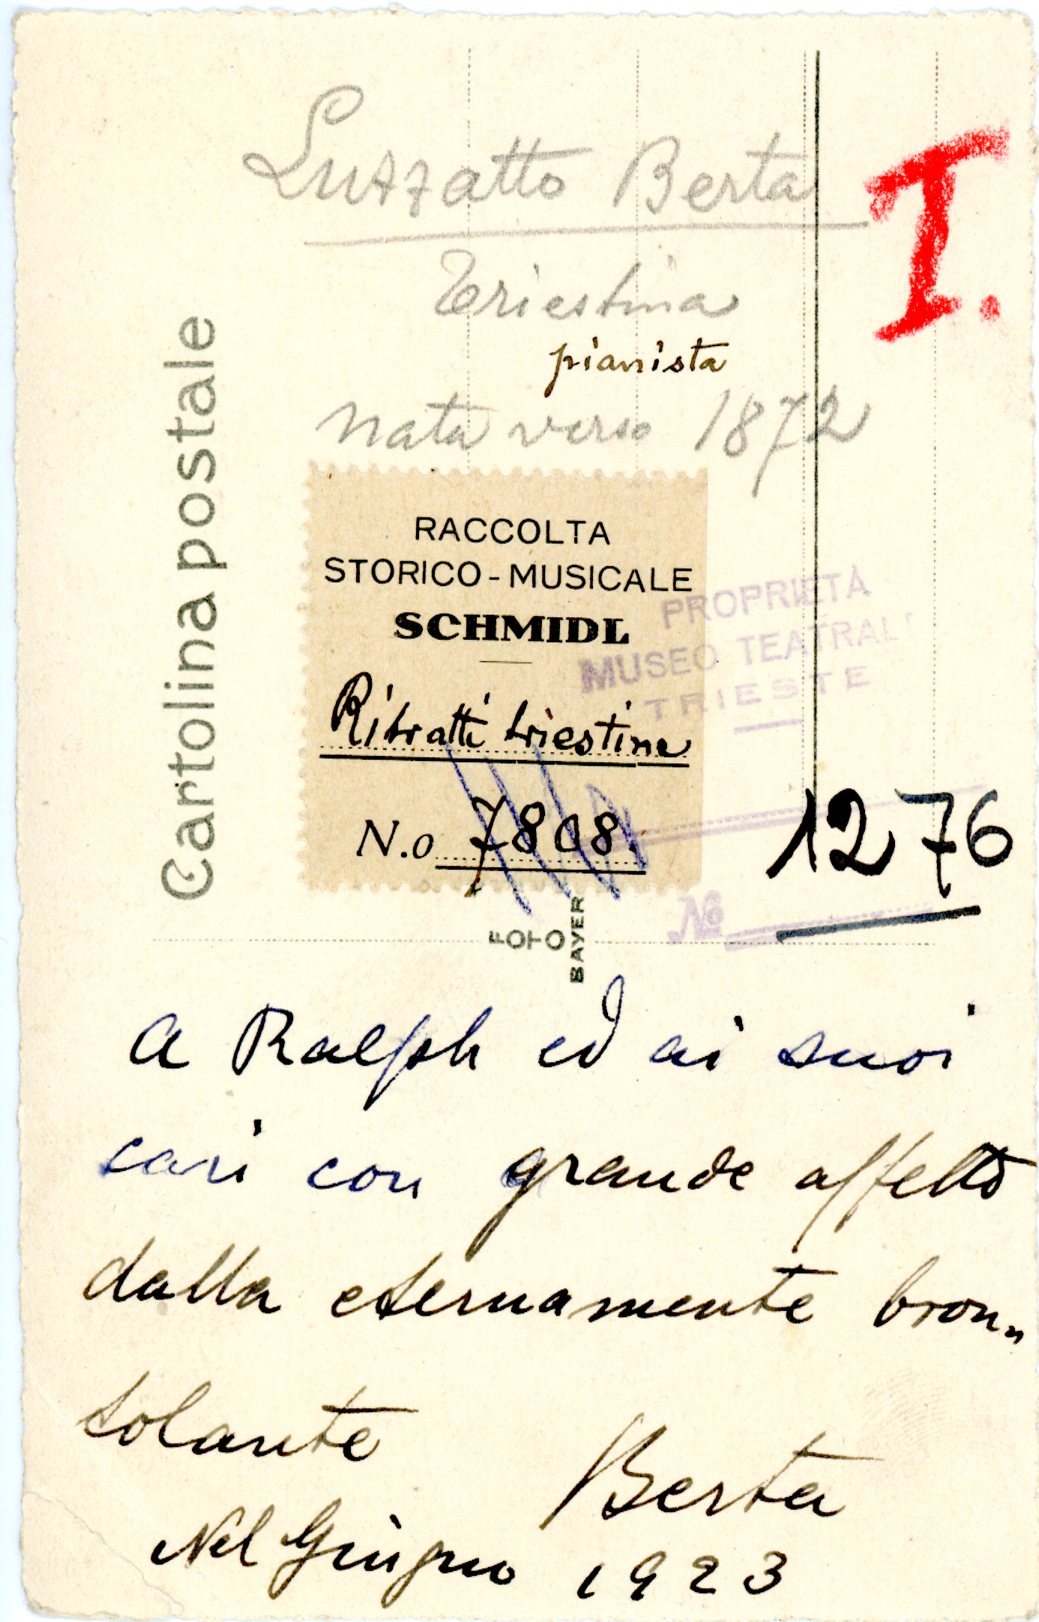 Luzzatto Berta
I.
Triestina
pianista
nata verso 1872
Cartolina postale
RACCOLTA
STORICO-MUSICALE
SCHMIDL
Ritratti triestine
N.o 7808.
PROPRIETÀ
MUSEO TEATRALE
TRIESTE
No
1276
FOTO
BAYER
A Ralph ed ai suoi
cari con grande affetto
dalla eternamente bron„
tolante
Berta
Nel Giugno 1923